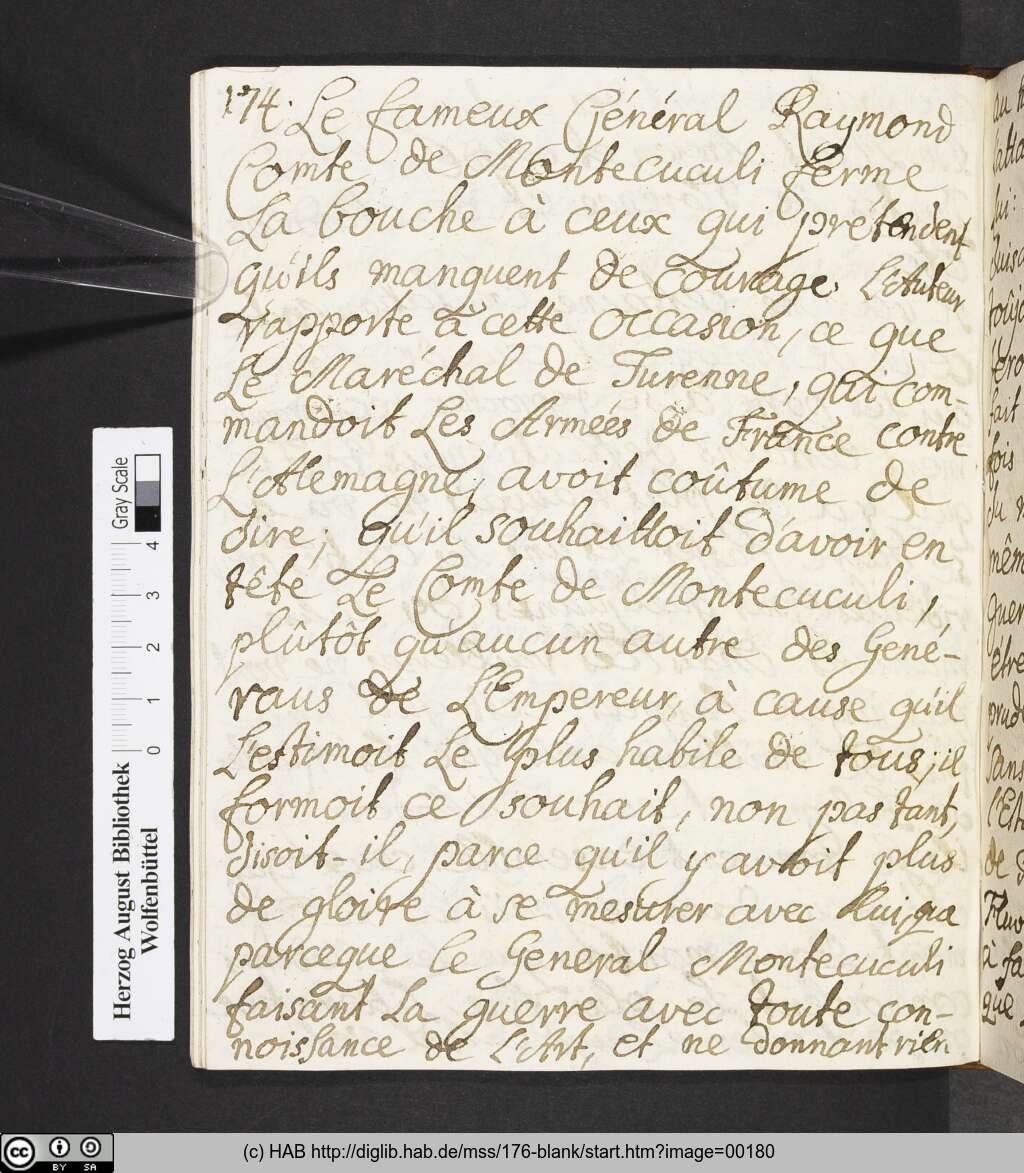 174. Le fameux Général Raymond
Comte de Montecuculi ferme
La bouche à ceux qui prétendent
qu'ils manquent de courage. L'Auteur
rapporte à cette occasion, ce que
Le Maréchal de Turenne, qui com-
mandoit Les Armées de France contre
L'Alemagne, avoit coûtume de
dire; qu'il souhaittoit d'avoir en
tête Le Comte de Montecuculi,
plûtôt qu'aucun autre des Géné-
raus de L'Empereur, à cause qu'il
L'estimoit Le plus habile de tous; il
formoit ce souhait, non pas tant,
disoit-il, parce qu'il y avoit plus
de gloire à se mesurer avec lui, que
parceque le General Montecuculi
faisant La guerre avec toute con-
noissance de L'Art, et ne donnant rien
Gray Scale
4
3
2
1
0
Herzog August Bibliothek
Wolfenbüttel
cc BY SA
(c) HAB http://diglib.hab.de/mss/176-blank/start.htm?image=00180